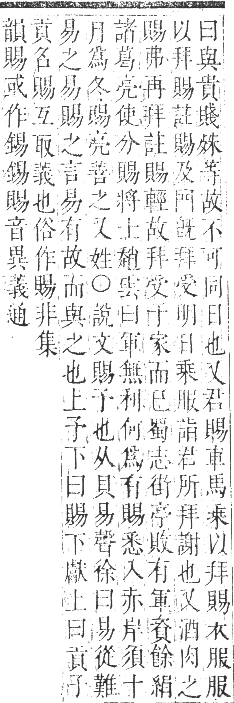 曰與貴賤殊等故不可同日也又君賜車馬乘以拜賜衣服服
以拜賜註賜及門旣拜受明日乘服詣君所拜謝也又酒肉之
賜弗再拜註賜輕故拜受于家而已蜀志街亭敗有軍資餘絹
諸葛亮使分賜將士趙雲曰軍無利何爲有賜悉入赤岸須十
月爲冬賜亮善之又姓○說文賜予也从貝易聲徐曰易從難
易之易賜之言易有故而與之也上予下曰賜下獻上曰貢子
貢名賜互取義也俗作賜非集
韻賜或作錫錫賜音異義通